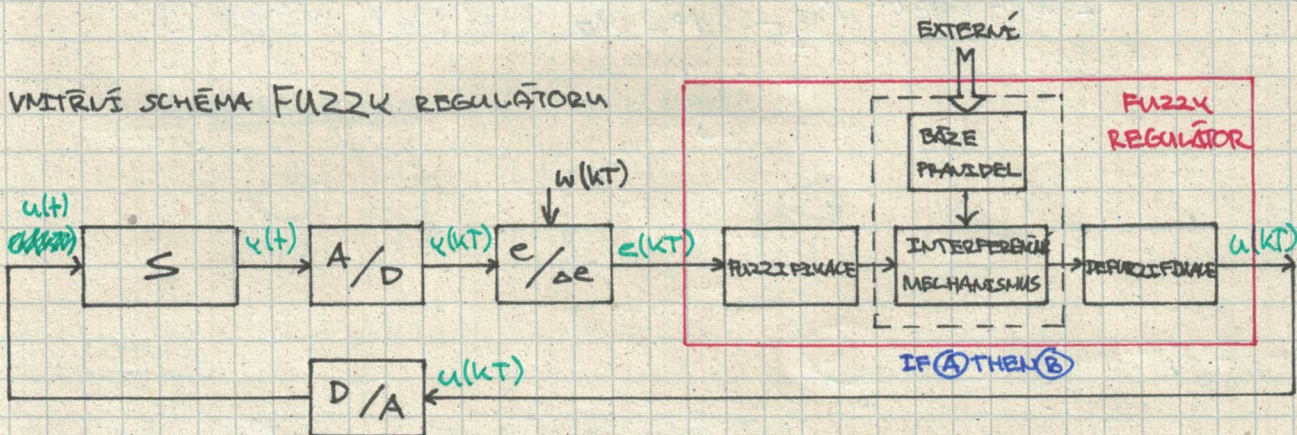 EXTERNÉ
VNITŘNÍ SCHÉMA FUZZY REGULÁTORU
FUZZY
REGULÁTOR
BÁZE
PRAVIDEL
w(kT)
u(t)
S
y(t)
A/D
y(kT)
e/Δe
e(kT)
FUZZIFIKACE
INTERFERENČNÍ
MECHANISMUS
DEFUZZIFIKACE
u(kT)
IF A THEN B
D/A
u(kT)